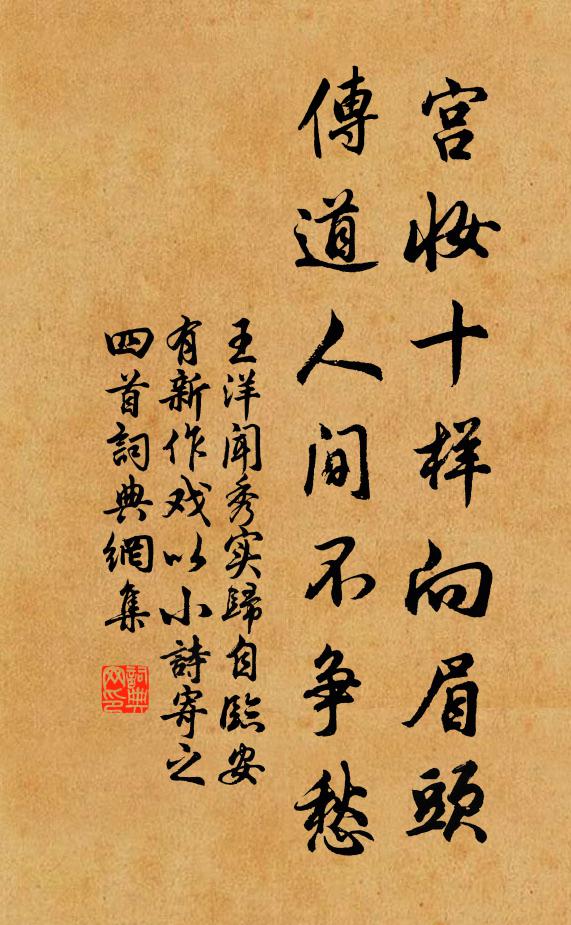 宫妝十样向眉頭
傳道人间不争愁
王洋闻秀实歸自臨安
有新作戏以小詩寄之
四首詞典網集
詞典网印